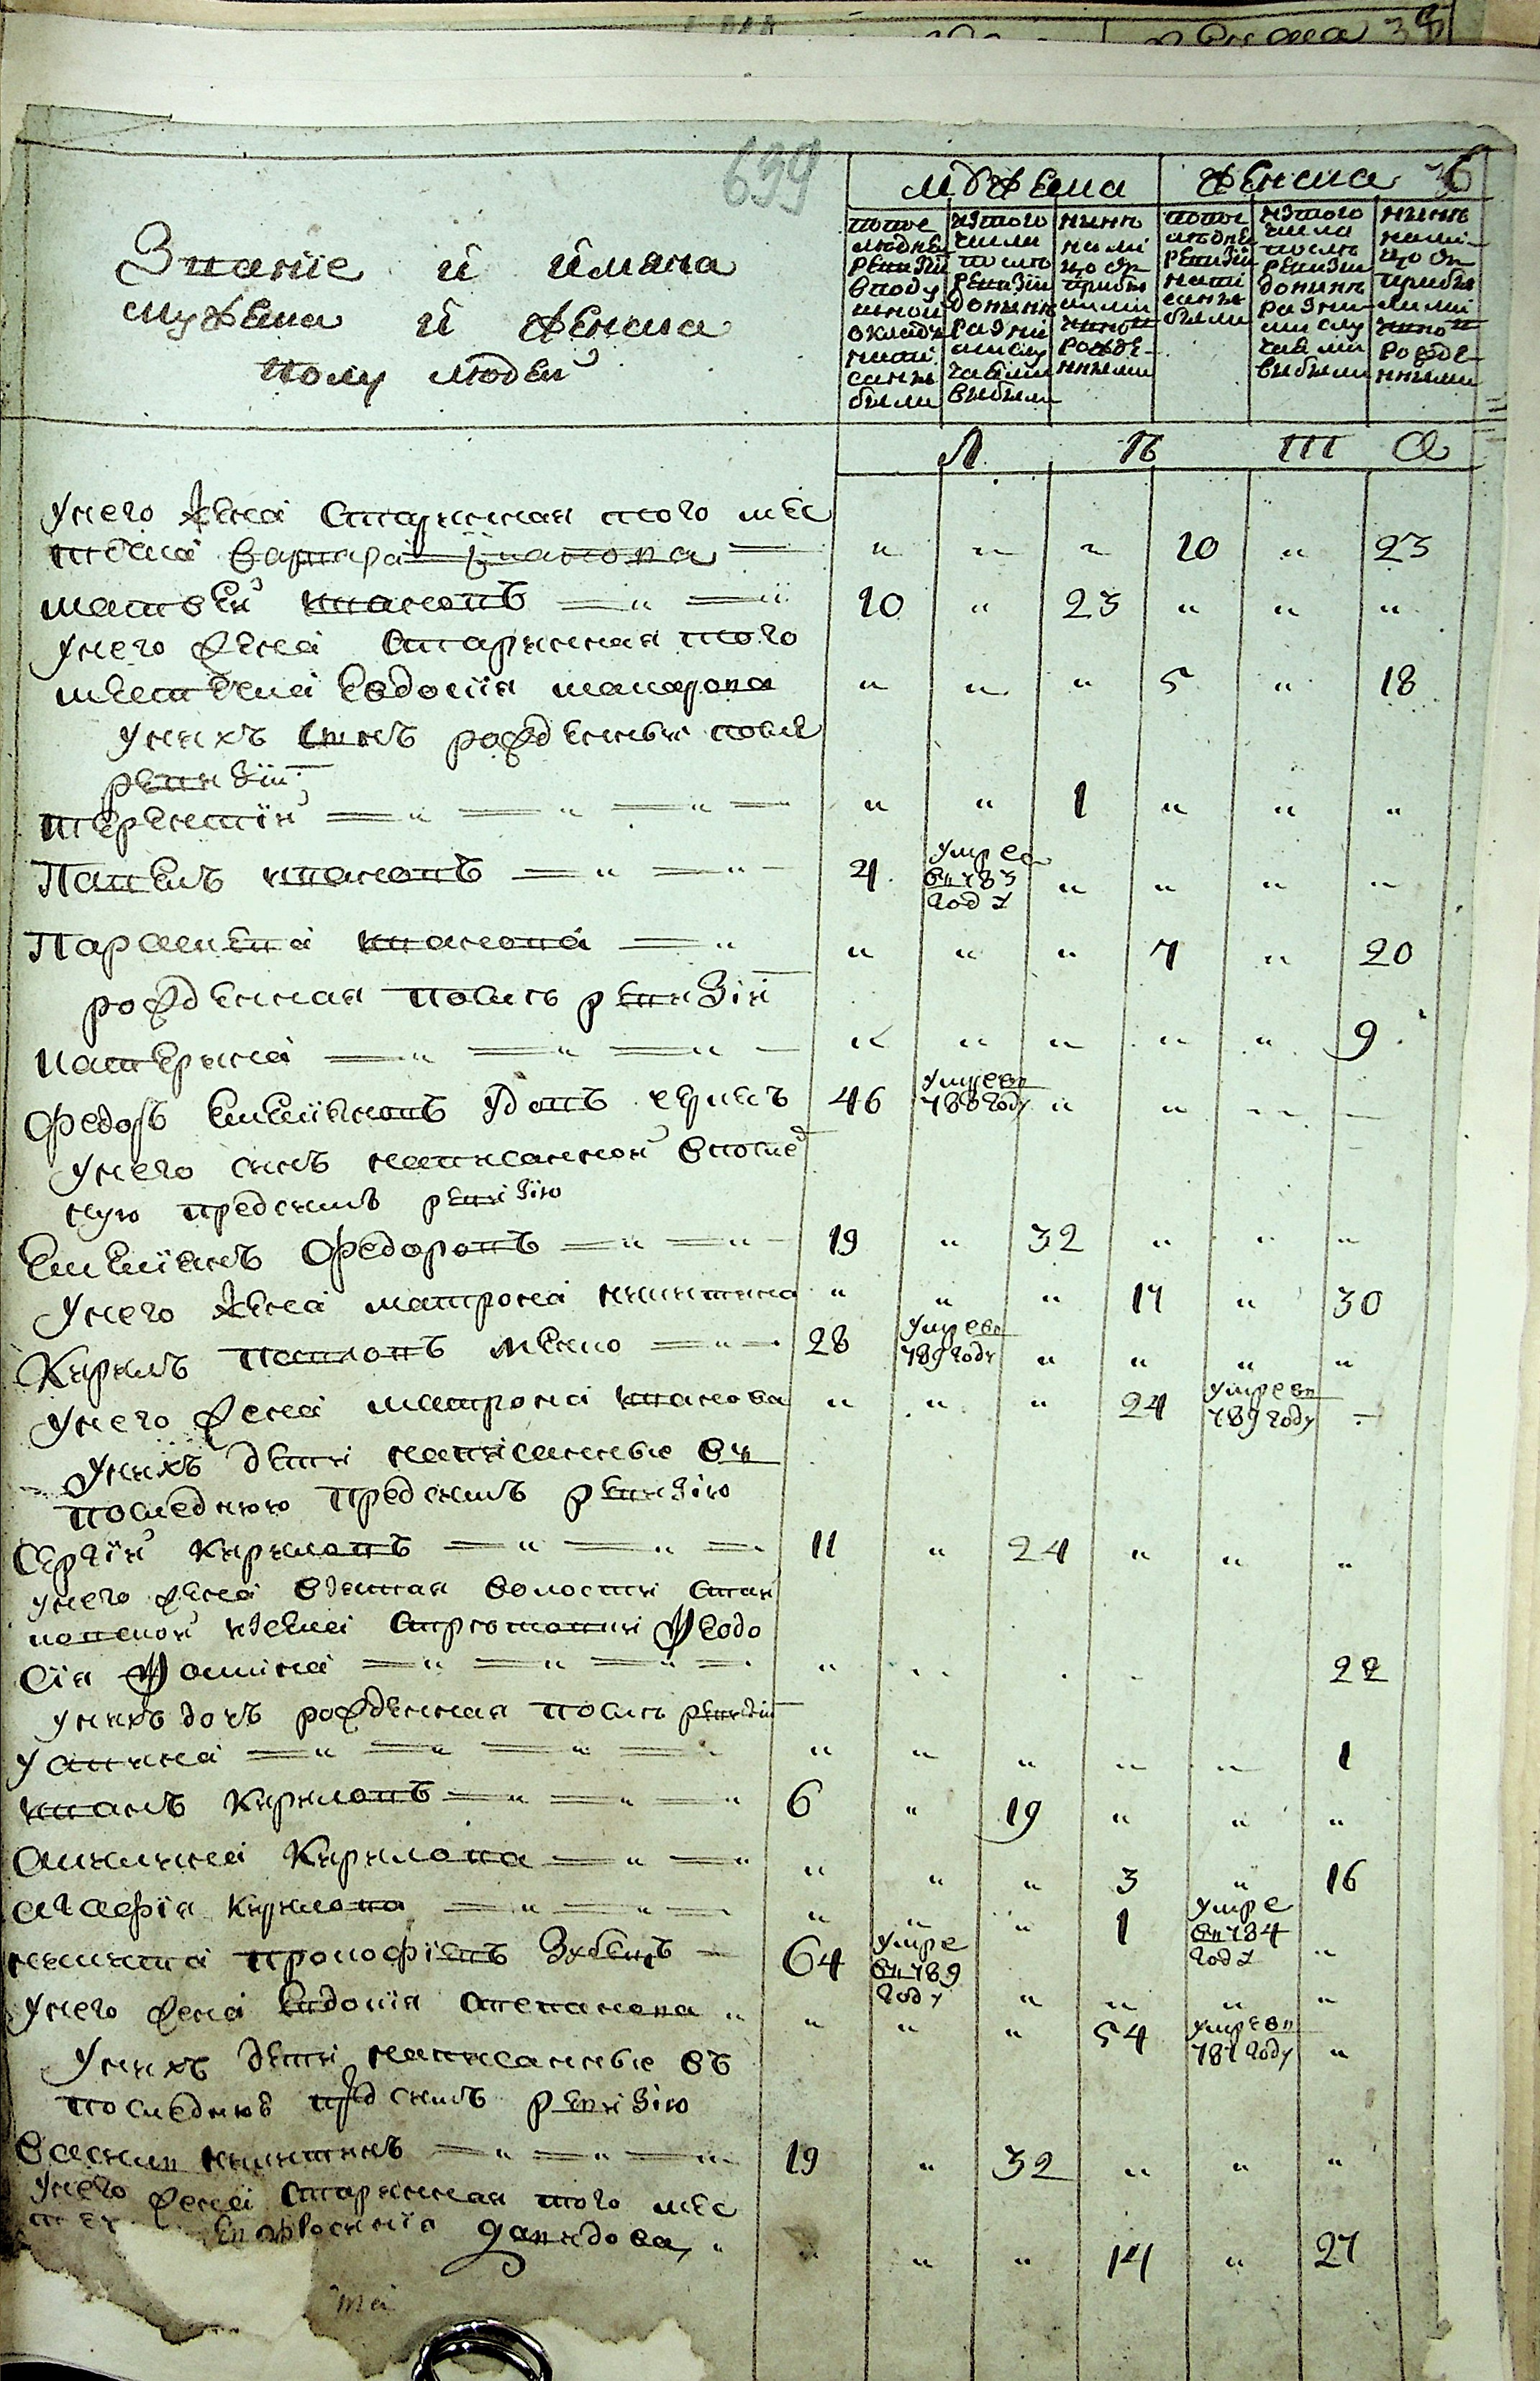 639
36
Звание и имяна
мужска и женска
полу людей
мужска
женска
попослюдней ревизии вподушной окладъ написаны были
изтого числа после ревизии доныне разными случаями выбыли
ныне налицо съприбылыми ивновь рожденными
попослюдней ревизии написаны были
изтого числа после ревизии доныне разными случаями выбыли
ныне налицо съприбылыми ивновь рожденными
Л Ѣ Т А
Унего жена старинная того мес
течка варвара иванова " " " 10 " 23
матвей ивановъ 10 " 23 " " "
унего жена старинная того
местечка евдокия макарова " " " 5 " 18
унихъ сынъ рожденный после
ревизии
терентий " " 1 " " "
Павелъ ивановъ 4 умре въ 783 годУ " " " "
Парасковея иванова " " " 7 " 20
рожденная после ревизии
катерина " " " " " 9
Федоръ емелияновъ удовъ 46 умре въ 788 году " " " "
унего сынъ написанной впослед
ную предсимъ ревизию
Емелиянъ Федоровъ 19 " 32 " " "
Унего жена матрона никитина " " " 17 " 30
Кирилъ павловъ 28 умре въ 789 году " " " "
унего жена матрона иванова " " " 24 умре въ 789 году
унихъ дети написанные въ
последнюю предсимъ ревизию
Сергий кириловъ 11 " 24 " " "
унего жена взятая волости
Феодо
сия Фомина " 22
унихъ дочъ рожденная после ревизии
устина " " " " " 1
иванъ кириловъ 6 " 19 " " "
акилина кирилова " " " 3 " 16
агафия кирилова " " " 1 умре въ 784 году "
никита прокофиевъ 64 умре въ 789 году " " " "
унего жена евдокия степанова " " " 54 умре въ 787 году "
Унихъ дети написанные въ
последнюю предсимъ ревизию
василий никитинъ 19 " 32 " " "
унего жена старинная того мес
евфросиния давидова " " " 14 " 27